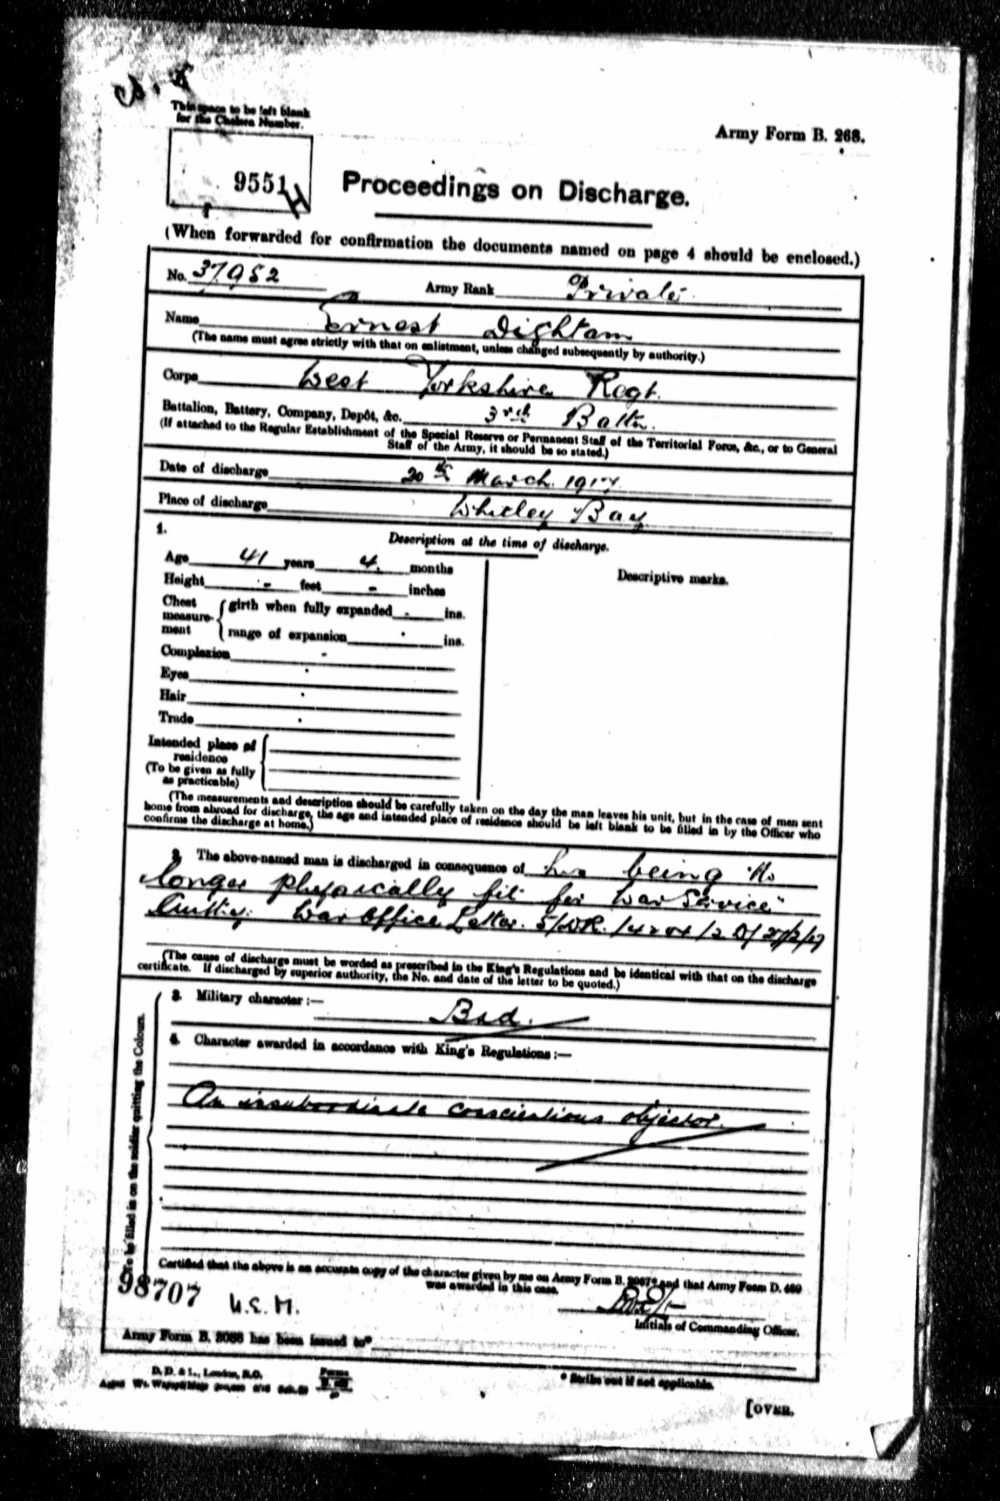 This space to be left blank
for the Chelsea Number.
Army Form B. 268.
9551
H
Proceedings on Discharge.
(When forwarded for confirmation the documents named on page 4 should be enclosed.)
No. 37952 Army Rank Private
Name Ernest Dightam
(The name must agree strictly with that on enlistment, unless changed subsequently by authority.)
Corps West Yorkshire Regt.
Battalion, Battery, Company, Depôt, &c. 3rd Battn.
(If attached to the Regular Establishment of the Special Reserve or Permanent Staff of the Territorial Force, &c., or to General
Staff of the Army, it should be so stated.)
Date of discharge 20th March. 1917
Place of discharge Whitley Bay
1. Description at the time of discharge.
Age 41 years 4. months
Descriptive marks.
Height - feet - inches
Chest measurement girth when fully expanded - ins.
range of expansion ins.
Complexion -
Eyes
Hair
Trade
Intended place of
residence
(To be given as fully
as practicable)
(The measurements and description should be carefully taken on the day the man leaves his unit, but in the case of men sent
home from abroad for discharge, the age and intended place of residence should be left blank to be filled in by the Officer who
confirms the discharge at home.)
2. The above-named man is discharged in consequence of his being "No
longer physically fit for War Service"
War Office Letter.
(The cause of discharge must be worded as prescribed in the King's Regulations and be identical with that on the discharge
certificate. If discharged by superior authority, the No. and date of the letter to be quoted.)
To be filled in on the soldier quitting the Colours.
3. Military character :— Bad.
4. Character awarded in accordance with King's Regulations :—
An insubordinate conscientious objector.
Certified that the above is an accurate copy of the character given by me on Army Form B. 2067* and that Army Form D. 480
was awarded in this case.
Initials of Commanding Officer.
98707
U.S.M.
Army Form B. 2088 has been issued to*
D. D. & L., London, E.C.
Forms
* Strike out if not applicable.
[OVER.